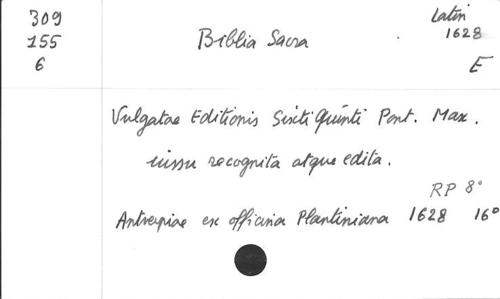 309
155
6
Biblia Sacra
Latin
1628
E
Vulgatae Editionis Sixti Quinti Pont. Max.
iussu recognita atque edita.
RP 8°
Antverpiae ex officina Plantiniana 1628 16°